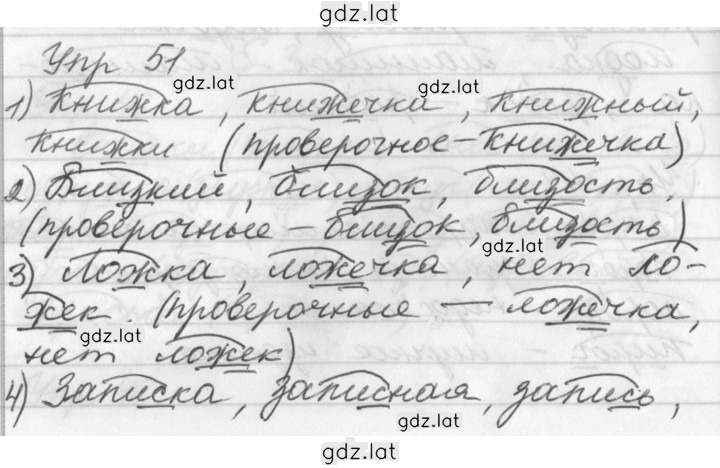 gdz.lat
Упр 51
gdz.lat
1) Книжка, книжечка, книжный,
книжки (проверочное – книжечка)
2) Близкий, близок, близость,
(проверочные – близок, близость)
gdz.lat
3) Ложка, ложечка, нет ло-
жек. (проверочные – ложечка,
gdz.lat
нет ложек)
4) Записка, записная, запись,
gdz.lat
gdz.lat